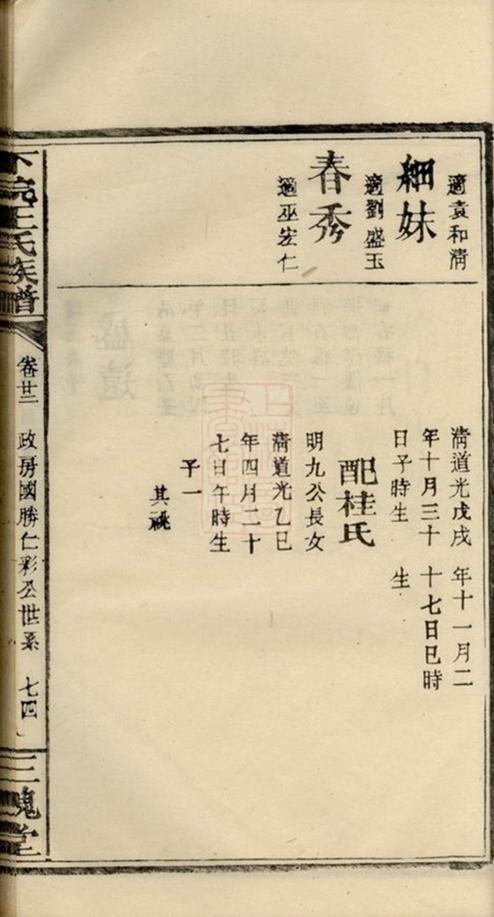 適袁和清
細妹
適劉盛玉
春秀
適巫宏仁
清道光戊戌
年十月三十
日子時生
配桂氏
明九公長女
清道光乙巳
年四月二十
七日午時生
子一
其祧
年十一月二
十七日巳時
生
下沅王氏族譜
卷廿二
政房國勝仁彩公世系
七四
三槐堂